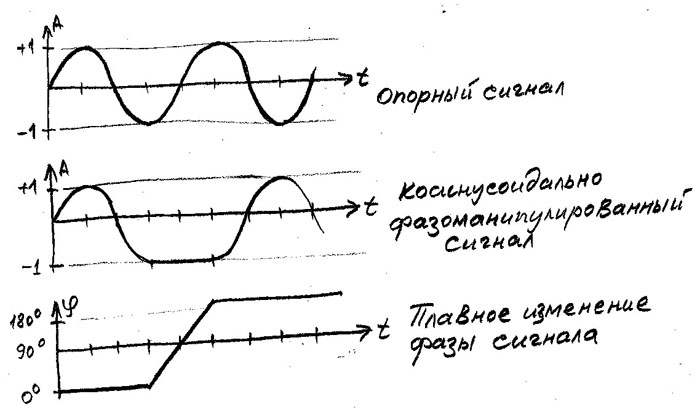 A
+1
-1
t
Опорный сигнал
A
+1
-1
t
Косинусоидально
фазоманипулированный
сигнал
φ
180°
90°
0°
t
Плавное изменение
фазы сигнала